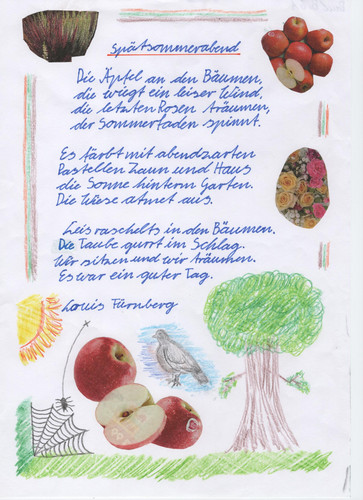 Spätsommerabend
Die Äpfel an den Bäumen,
die wiegt ein leiser Wind,
die letzten Rosen träumen,
der Sommerfaden spinnt.
Es färbt mit abendzarten
Pastellen Zaun und Haus
die Sonne hinterm Garten.
Die Wiese atmet aus.
Leis raschelts in den Bäumen.
Die Taube gurrt im Schlag.
Wir sitzen und wir träumen.
Es war ein guter Tag.
Louis Fürnberg